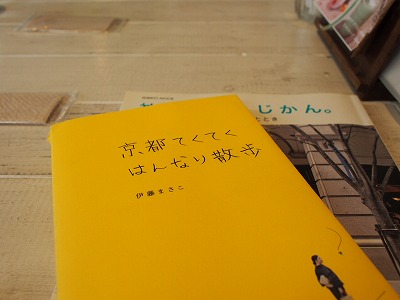 京都てくてく
はんなり散歩
伊藤まさこ
じかん。
たとき